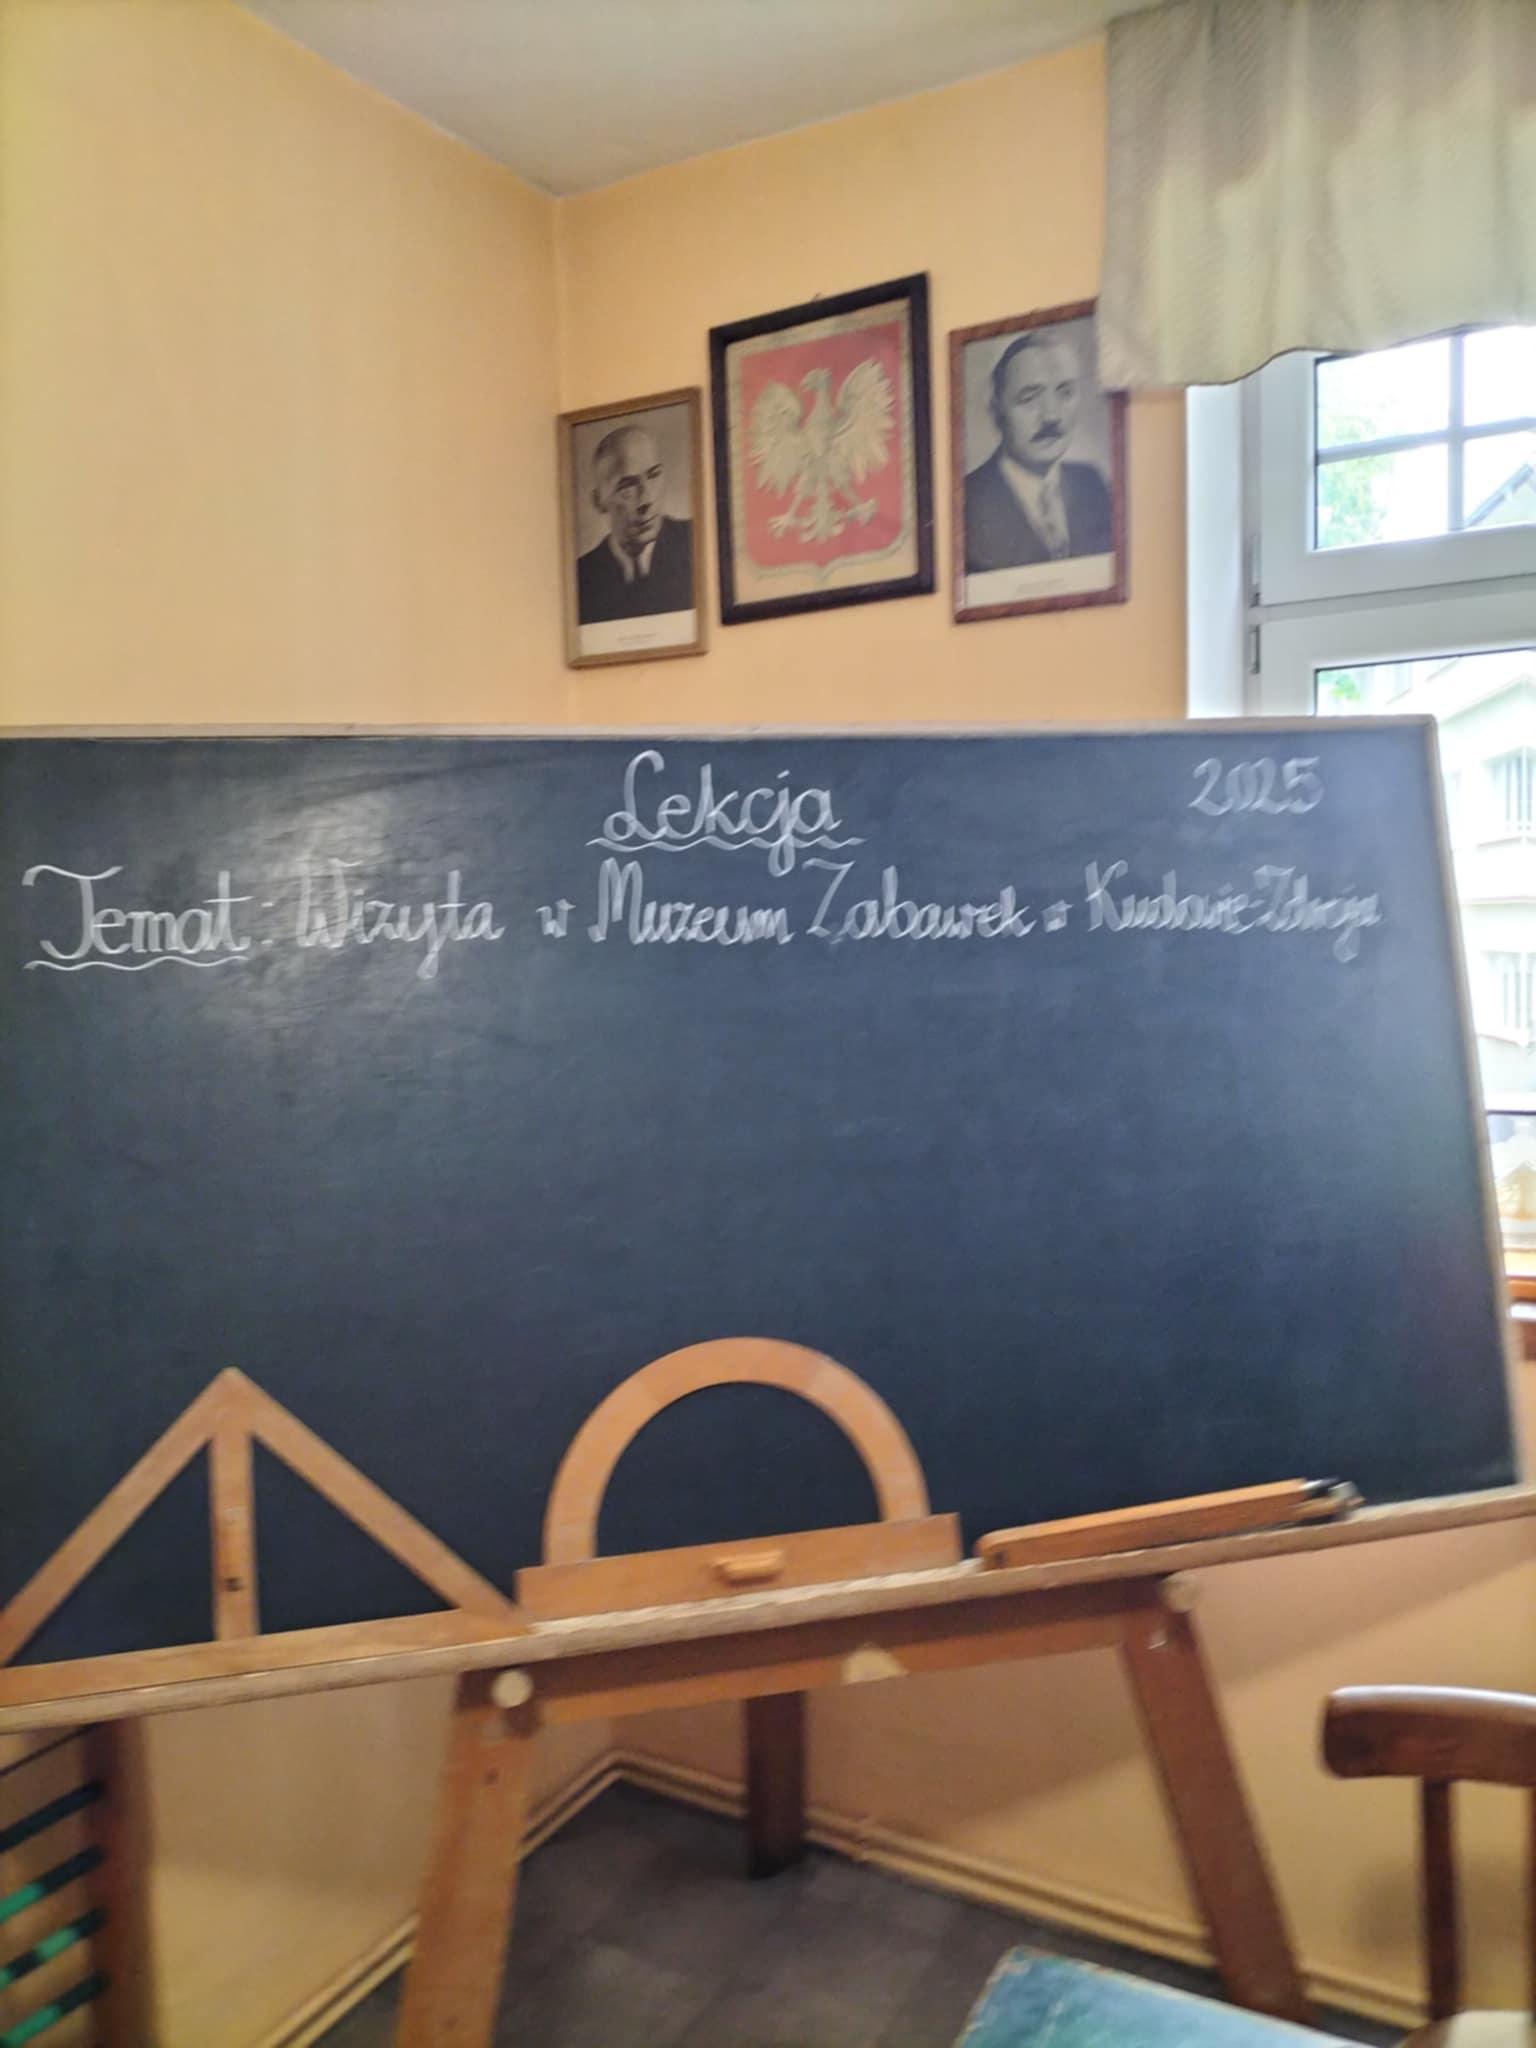 Lekcja 2025
Temat: Wizyta w Muzeum Zabawek w Kudowie-Zdroju